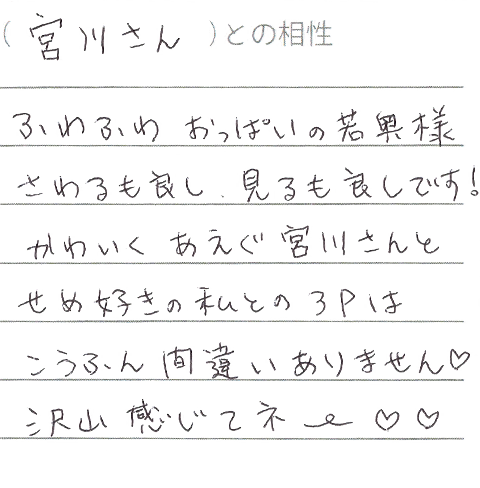 (宮川さん)との相性
ふわふわ おっぱいの若奥様
さわるも良し、見るも良しです!
かわいく あえぐ宮川さんと
せめ好きの私との3Pは
こうふん間違いありません♡
沢山感じてネ〜♡♡